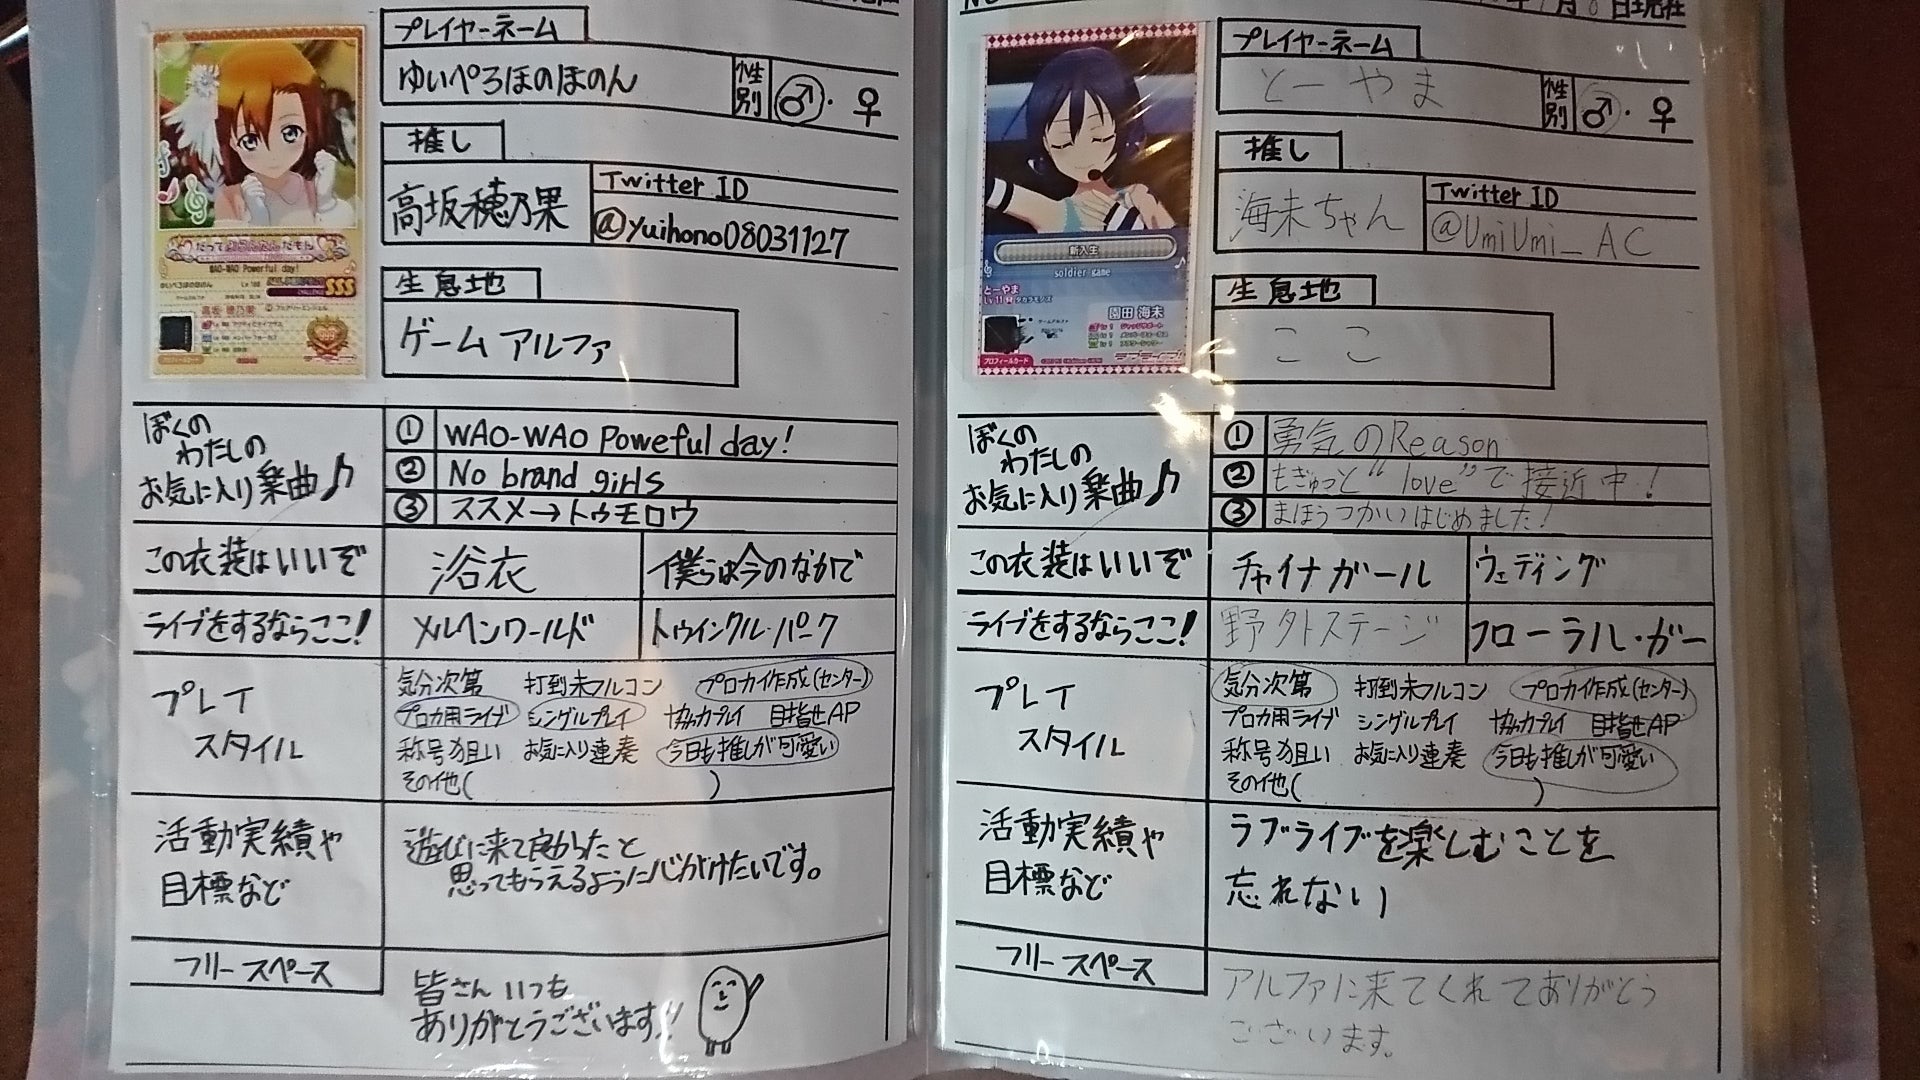 プレイヤーネーム
ゆいぺろほのほのん
性別
♂・♀
推し
高坂穂乃果
Twitter ID
@yuihono08031127
生息地
ゲームアルファ
だってぱりょくなんだもん
WAO-WAO Powerful day!
SSS
高坂 穂乃果
ぼくの
わたしの
お気に入り楽曲♪
① WAO-WAO Poweful day!
② No brand girls
③ ススメ→トゥモロウ
この衣装はいいぞ
浴衣
僕らは今のなかで
ライブをするならここ!
メルヘンワールド
トゥインクル・パーク
プレイ
スタイル
気分次第 打倒未フルコン プロカイ作成(センター)
プロカ用ライブ シングルプレイ 協力プレイ 目指せAP
称号狙い お気に入り連奏 今日も推しが可愛い
その他( )
活動実績や
目標など
遊びに来て良かったと
思ってもらえるように心がけたいです。
フリースペース
皆さんいつも
ありがとうございます!!
プレイヤーネーム
とーやま
性別
♂・♀
推し
海未ちゃん
Twitter ID
@UmiUmi_AC
生息地
ここ
新入生
soldier game
とーやま
園田 海未
プロフィールカード
ラブライブ!
ぼくの
わたしの
お気に入り楽曲♪
① 勇気のReason
② もぎゅっと"love"で接近中!
③ まほうつかいはじめました!
この衣装はいいぞ
チャイナガール
ウェディング
ライブをするならここ!
野外ステージ
フローラル・ガー
プレイ
スタイル
気分次第 打倒未フルコン プロカイ作成(センター)
プロカ用ライブ シングルプレイ 協力プレイ 目指せAP
称号狙い お気に入り連奏 今日も推しが可愛い
その他( )
活動実績や
目標など
ラブライブを楽しむことを
忘れない
フリースペース
アルファに来てくれてありがとう
ございます。